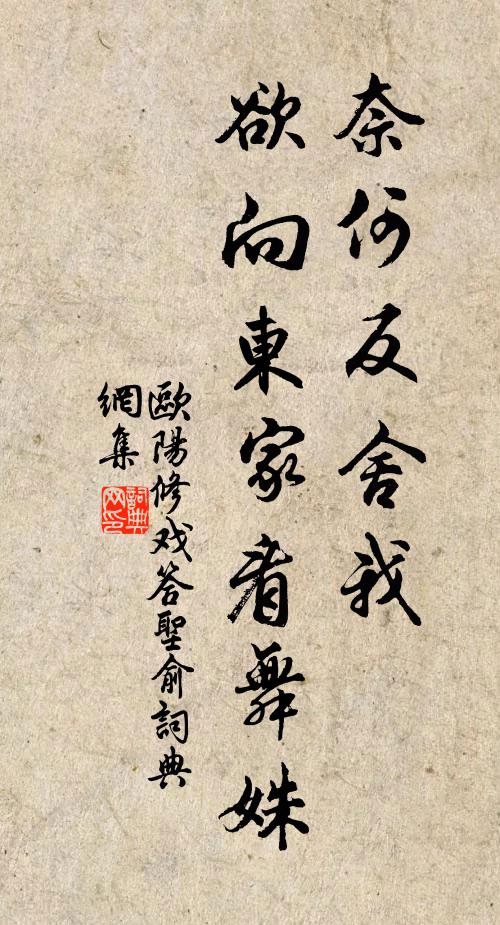 奈何反舍我
欲向東家看舞姝
歐陽修戏答聖俞詞典
網集
詞典网印